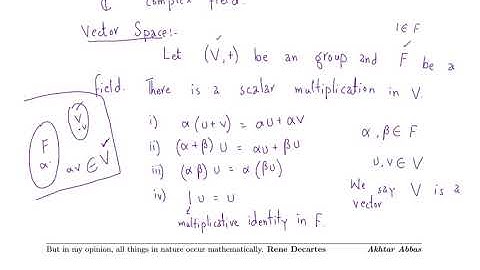 ₵ complex field.
Vector Space:-
1 ∈ F
Let (V, +) be an group and F be a
field. There is a scalar multiplication in V.
i) α(u+v) = αu + αv
ii) (α+β) u = αu + βu
iii) (αβ) u = α(βu)
iv) 1 u = u
multiplicative identity in F.
α, β ∈ F
u, v ∈ V
We say V is a
vector
F
α
V
.v
αv ∈ V
But in my opinion, all things in nature occur mathematically. Rene Decartes Akhtar Abbas